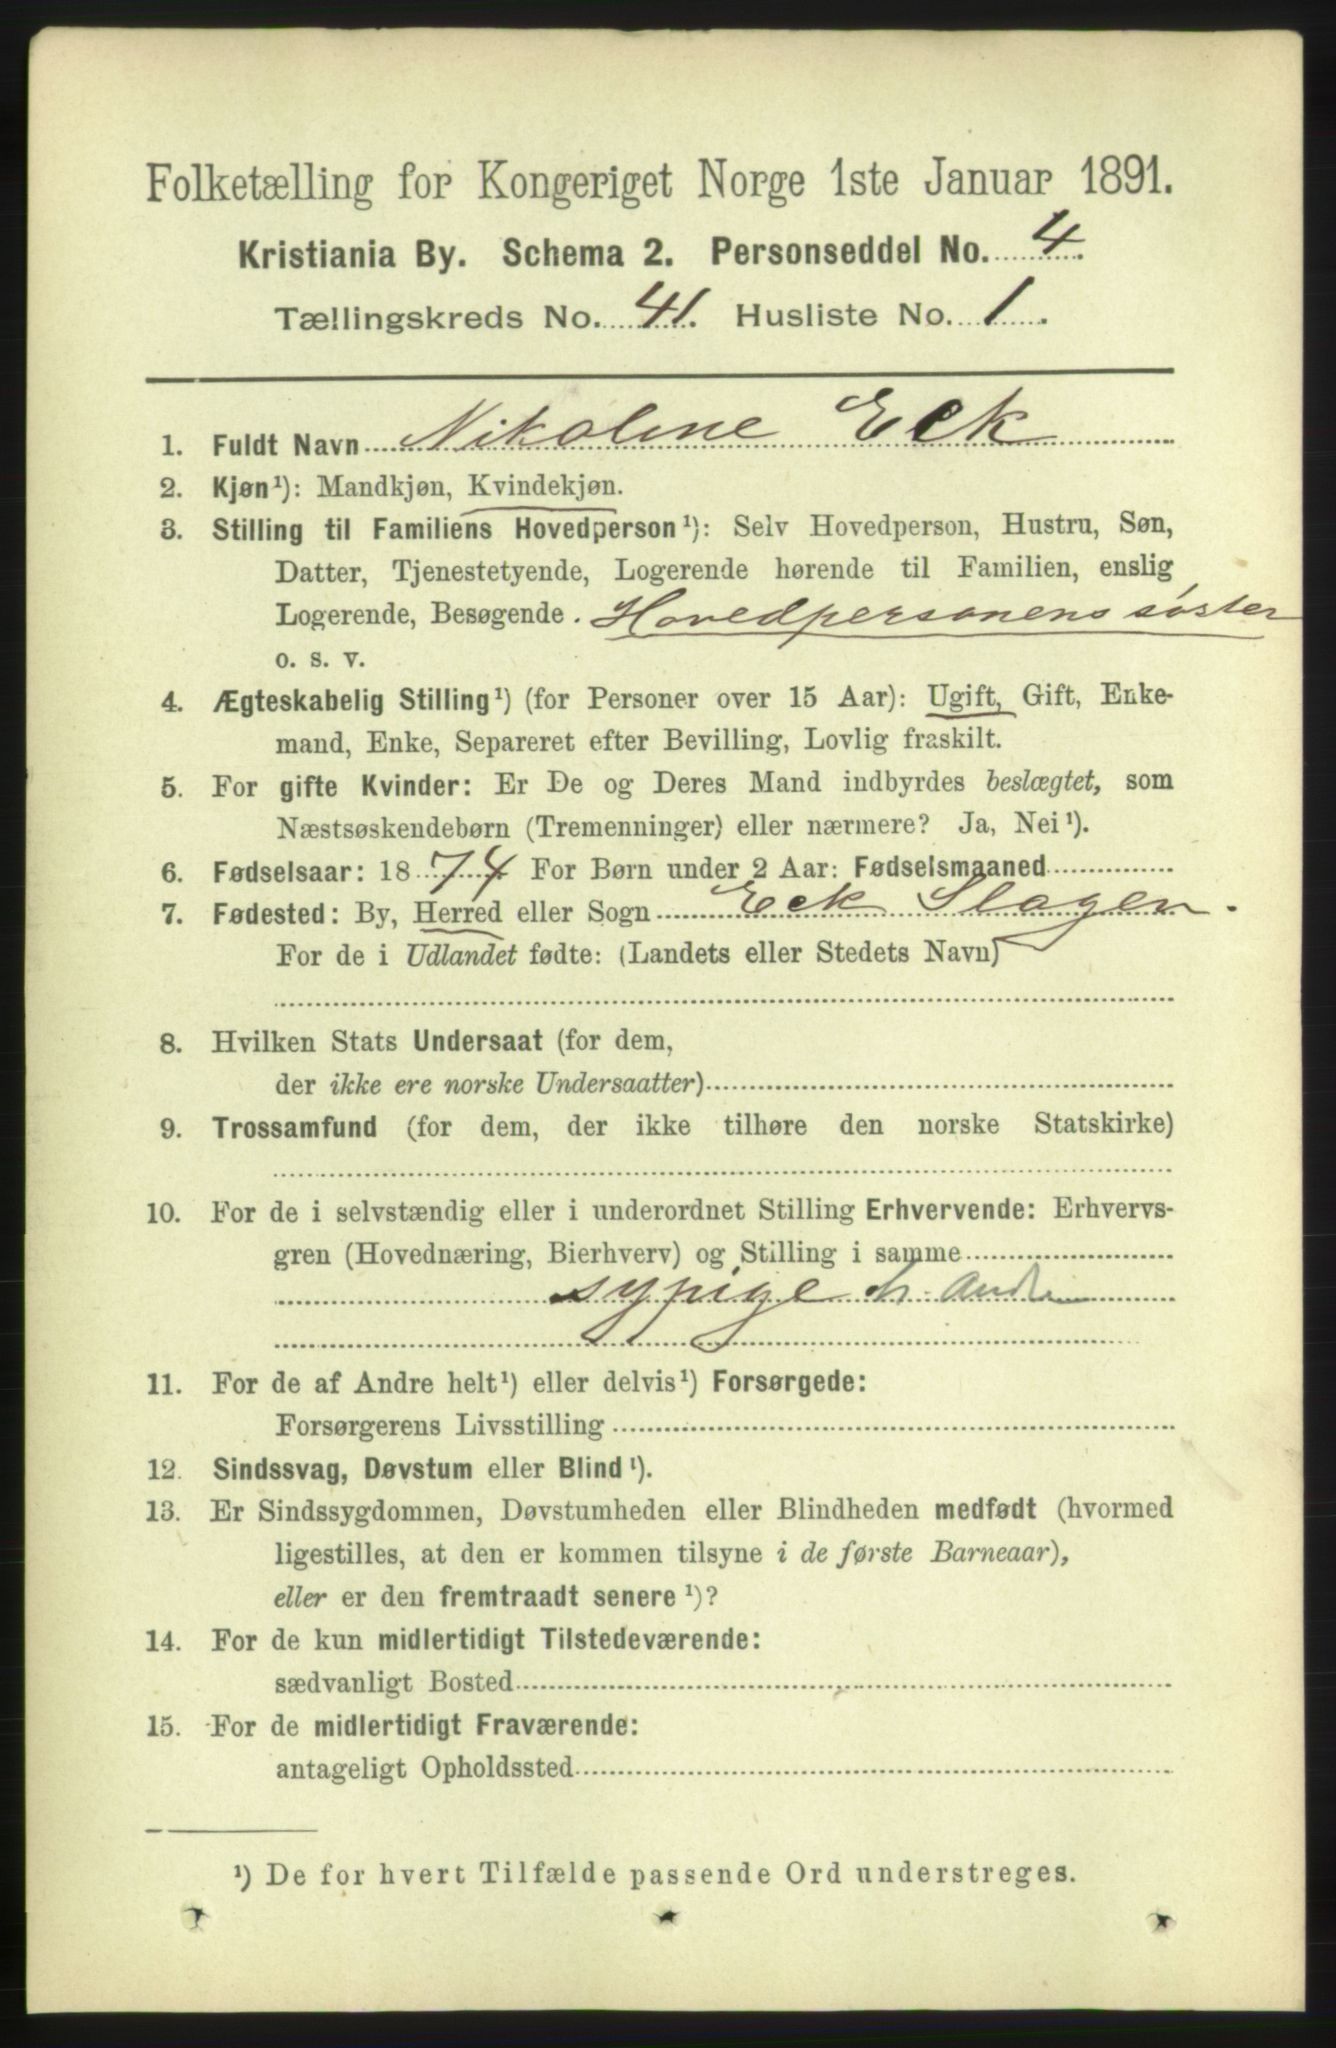 Folketælling for Kongeriget Norge 1ste Januar 1891.
Kristiania By. Schema 2. Personseddel No. 4
Tællingskreds No. 41. Husliste No. 1.
1. Fuldt Navn Nikoline Eek
2. Kjøn¹): Mandkjøn, Kvindekjøn.
3. Stilling til Familiens Hovedperson¹): Selv Hovedperson, Hustru, Søn,
Datter, Tjenestetyende, Logerende hørende til Familien, enslig
Logerende, Besøgende. Hovedpersonens søster
o. s. v.
4. Ægteskabelig Stilling¹) (for Personer over 15 Aar): Ugift, Gift, Enke-
mand, Enke, Separeret efter Bevilling, Lovlig fraskilt.
5. For gifte Kvinder: Er De og Deres Mand indbyrdes beslægtet, som
Næstsøskendebørn (Tremenninger) eller nærmere? Ja, Nei¹).
6. Fødselsaar: 1874 For Børn under 2 Aar: Fødselsmaaned
7. Fødested: By, Herred eller Sogn Eek Slagen.
For de i Udlandet fødte: (Landets eller Stedets Navn)
8. Hvilken Stats Undersaat (for dem,
der ikke ere norske Undersaatter)
9. Trossamfund (for dem, der ikke tilhøre den norske Statskirke)
10. For de i selvstændig eller i underordnet Stilling Erhvervende: Erhvervs-
gren (Hovednæring, Bierhverv) og Stilling i samme
sypige
11. For de af Andre helt¹) eller delvis¹) Forsørgede:
Forsørgerens Livsstilling
12. Sindssvag, Døvstum eller Blind¹).
13. Er Sindssygdommen, Døvstumheden eller Blindheden medfødt (hvormed
ligestilles, at den er kommen tilsyne i de første Barneaar),
eller er den fremtraadt senere¹)?
14. For de kun midlertidigt Tilstedeværende:
sædvanligt Bosted
15. For de midlertidigt Fraværende:
antageligt Opholdssted
¹) De for hvert Tilfælde passende Ord understreges.